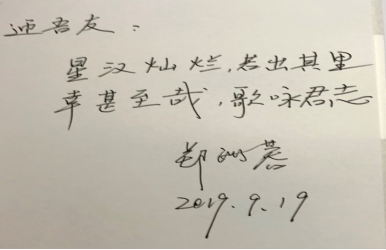 吾友：
星汉灿烂，若出其里
幸甚至哉，歌咏君志
郑
2019.9.19